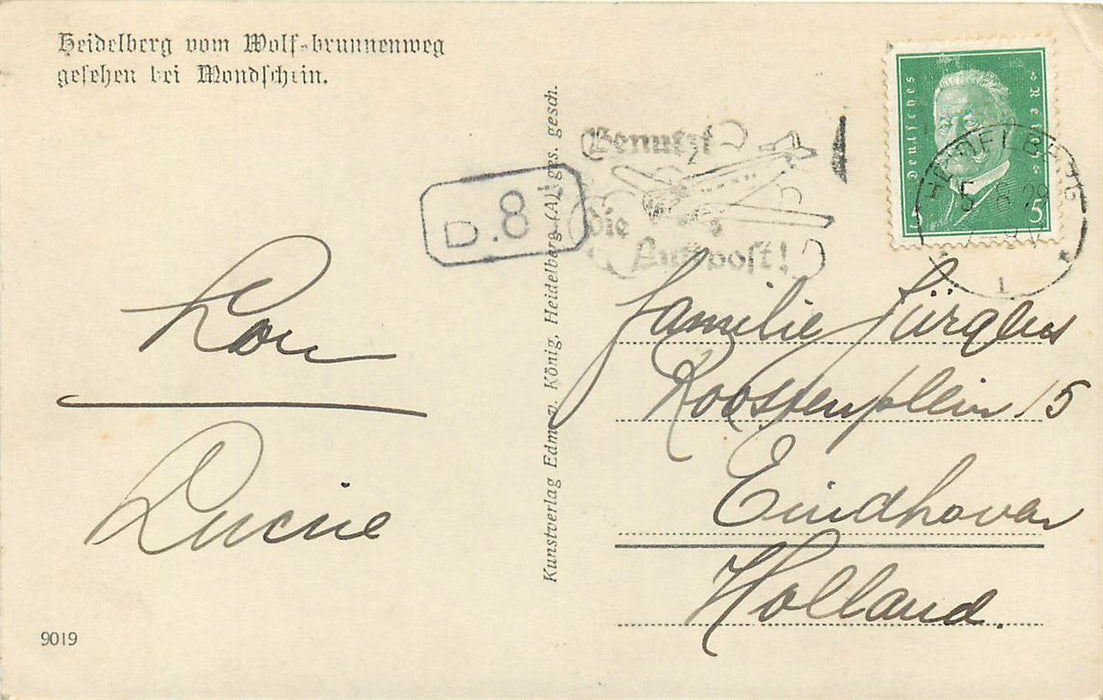 Heidelberg vom Wolfsbrunnenweg
gesehen bei Mondschein.
Benutzt
die
Luftpost!
D.8
Deutsches Reich
5 5
HEIDELBERG
Lou
Lucie
Kunstverlag Edm. v. König, Heidelberg (A) ges. gesch.
Familie Jürgens
Roostenplein 15
Eindhoven
Holland.
9019